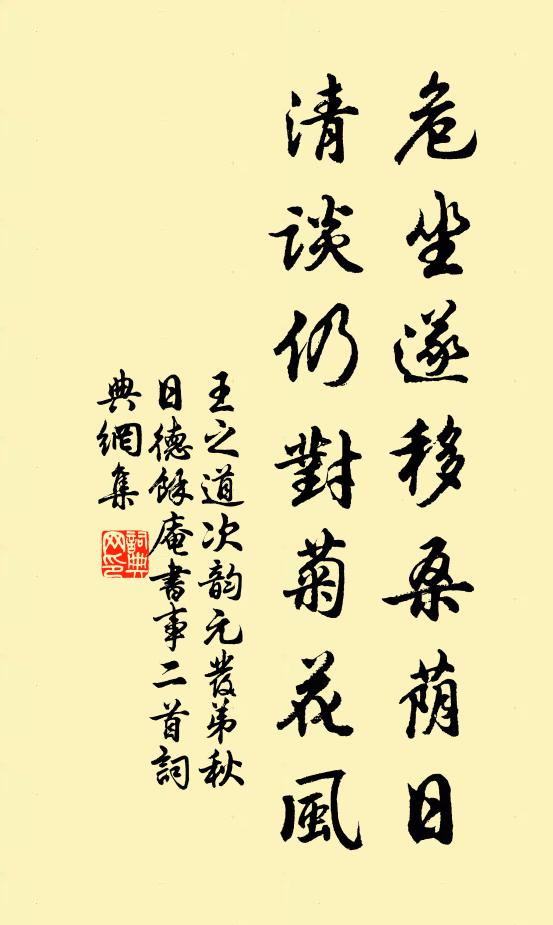 危坐遂移桑蔭日
清談仍對菊花風
王之道次韵元發弟秋
日德餘庵書事二首詞
典網集
詞典网印